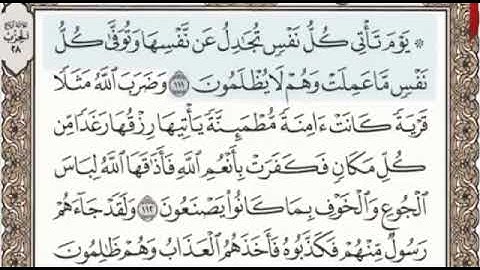 ۞ يَوْمَ تَأْتِى كُلُّ نَفْسٍ تُجَٰدِلُ عَن نَّفْسِهَا وَتُوَفَّىٰ كُلُّ
نَفْسٍ مَّا عَمِلَتْ وَهُمْ لَا يُظْلَمُونَ ١١١ وَضَرَبَ ٱللَّهُ مَثَلًا
قَرْيَةً كَانَتْ ءَامِنَةً مُّطْمَئِنَّةً يَأْتِيهَا رِزْقُهَا رَغَدًا مِّن
كُلِّ مَكَانٍ فَكَفَرَتْ بِأَنْعُمِ ٱللَّهِ فَأَذَٰقَهَا ٱللَّهُ لِبَاسَ
ٱلْجُوعِ وَٱلْخَوْفِ بِمَا كَانُوا۟ يَصْنَعُونَ ١١٢ وَلَقَدْ جَآءَهُمْ
رَسُولٌ مِّنْهُمْ فَكَذَّبُوهُ فَأَخَذَهُمُ ٱلْعَذَابُ وَهُمْ ظَٰلِمُونَ
الحزب
٢٨